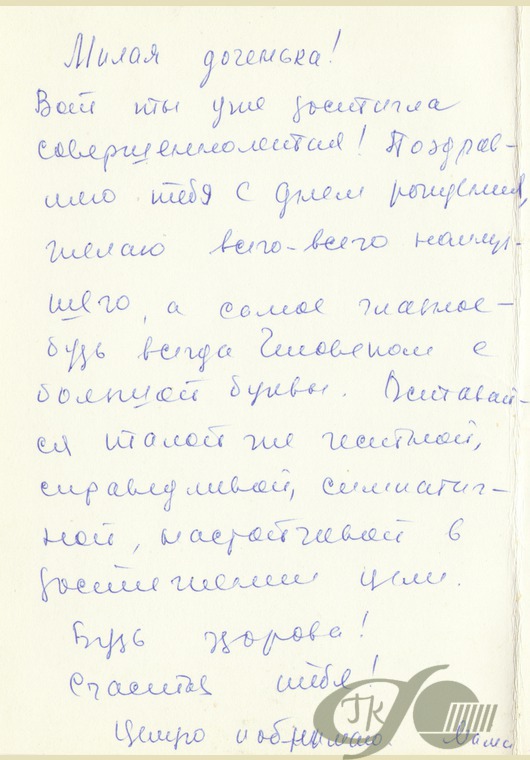 Милая доченька!
Вот ты уже достигла
совершеннолетия! Поздрав-
ляю тебя с днем рождения,
желаю всего-всего наилуч-
шего, а самое главное -
будь всегда Человеком с
большой буквы. Оставай-
ся такой же честной,
справедливой, симпатич-
ной, настойчивой в
достижении цели.
Будь здорова!
Счастья тебе!
Целую и обнимаю Мама
ГК